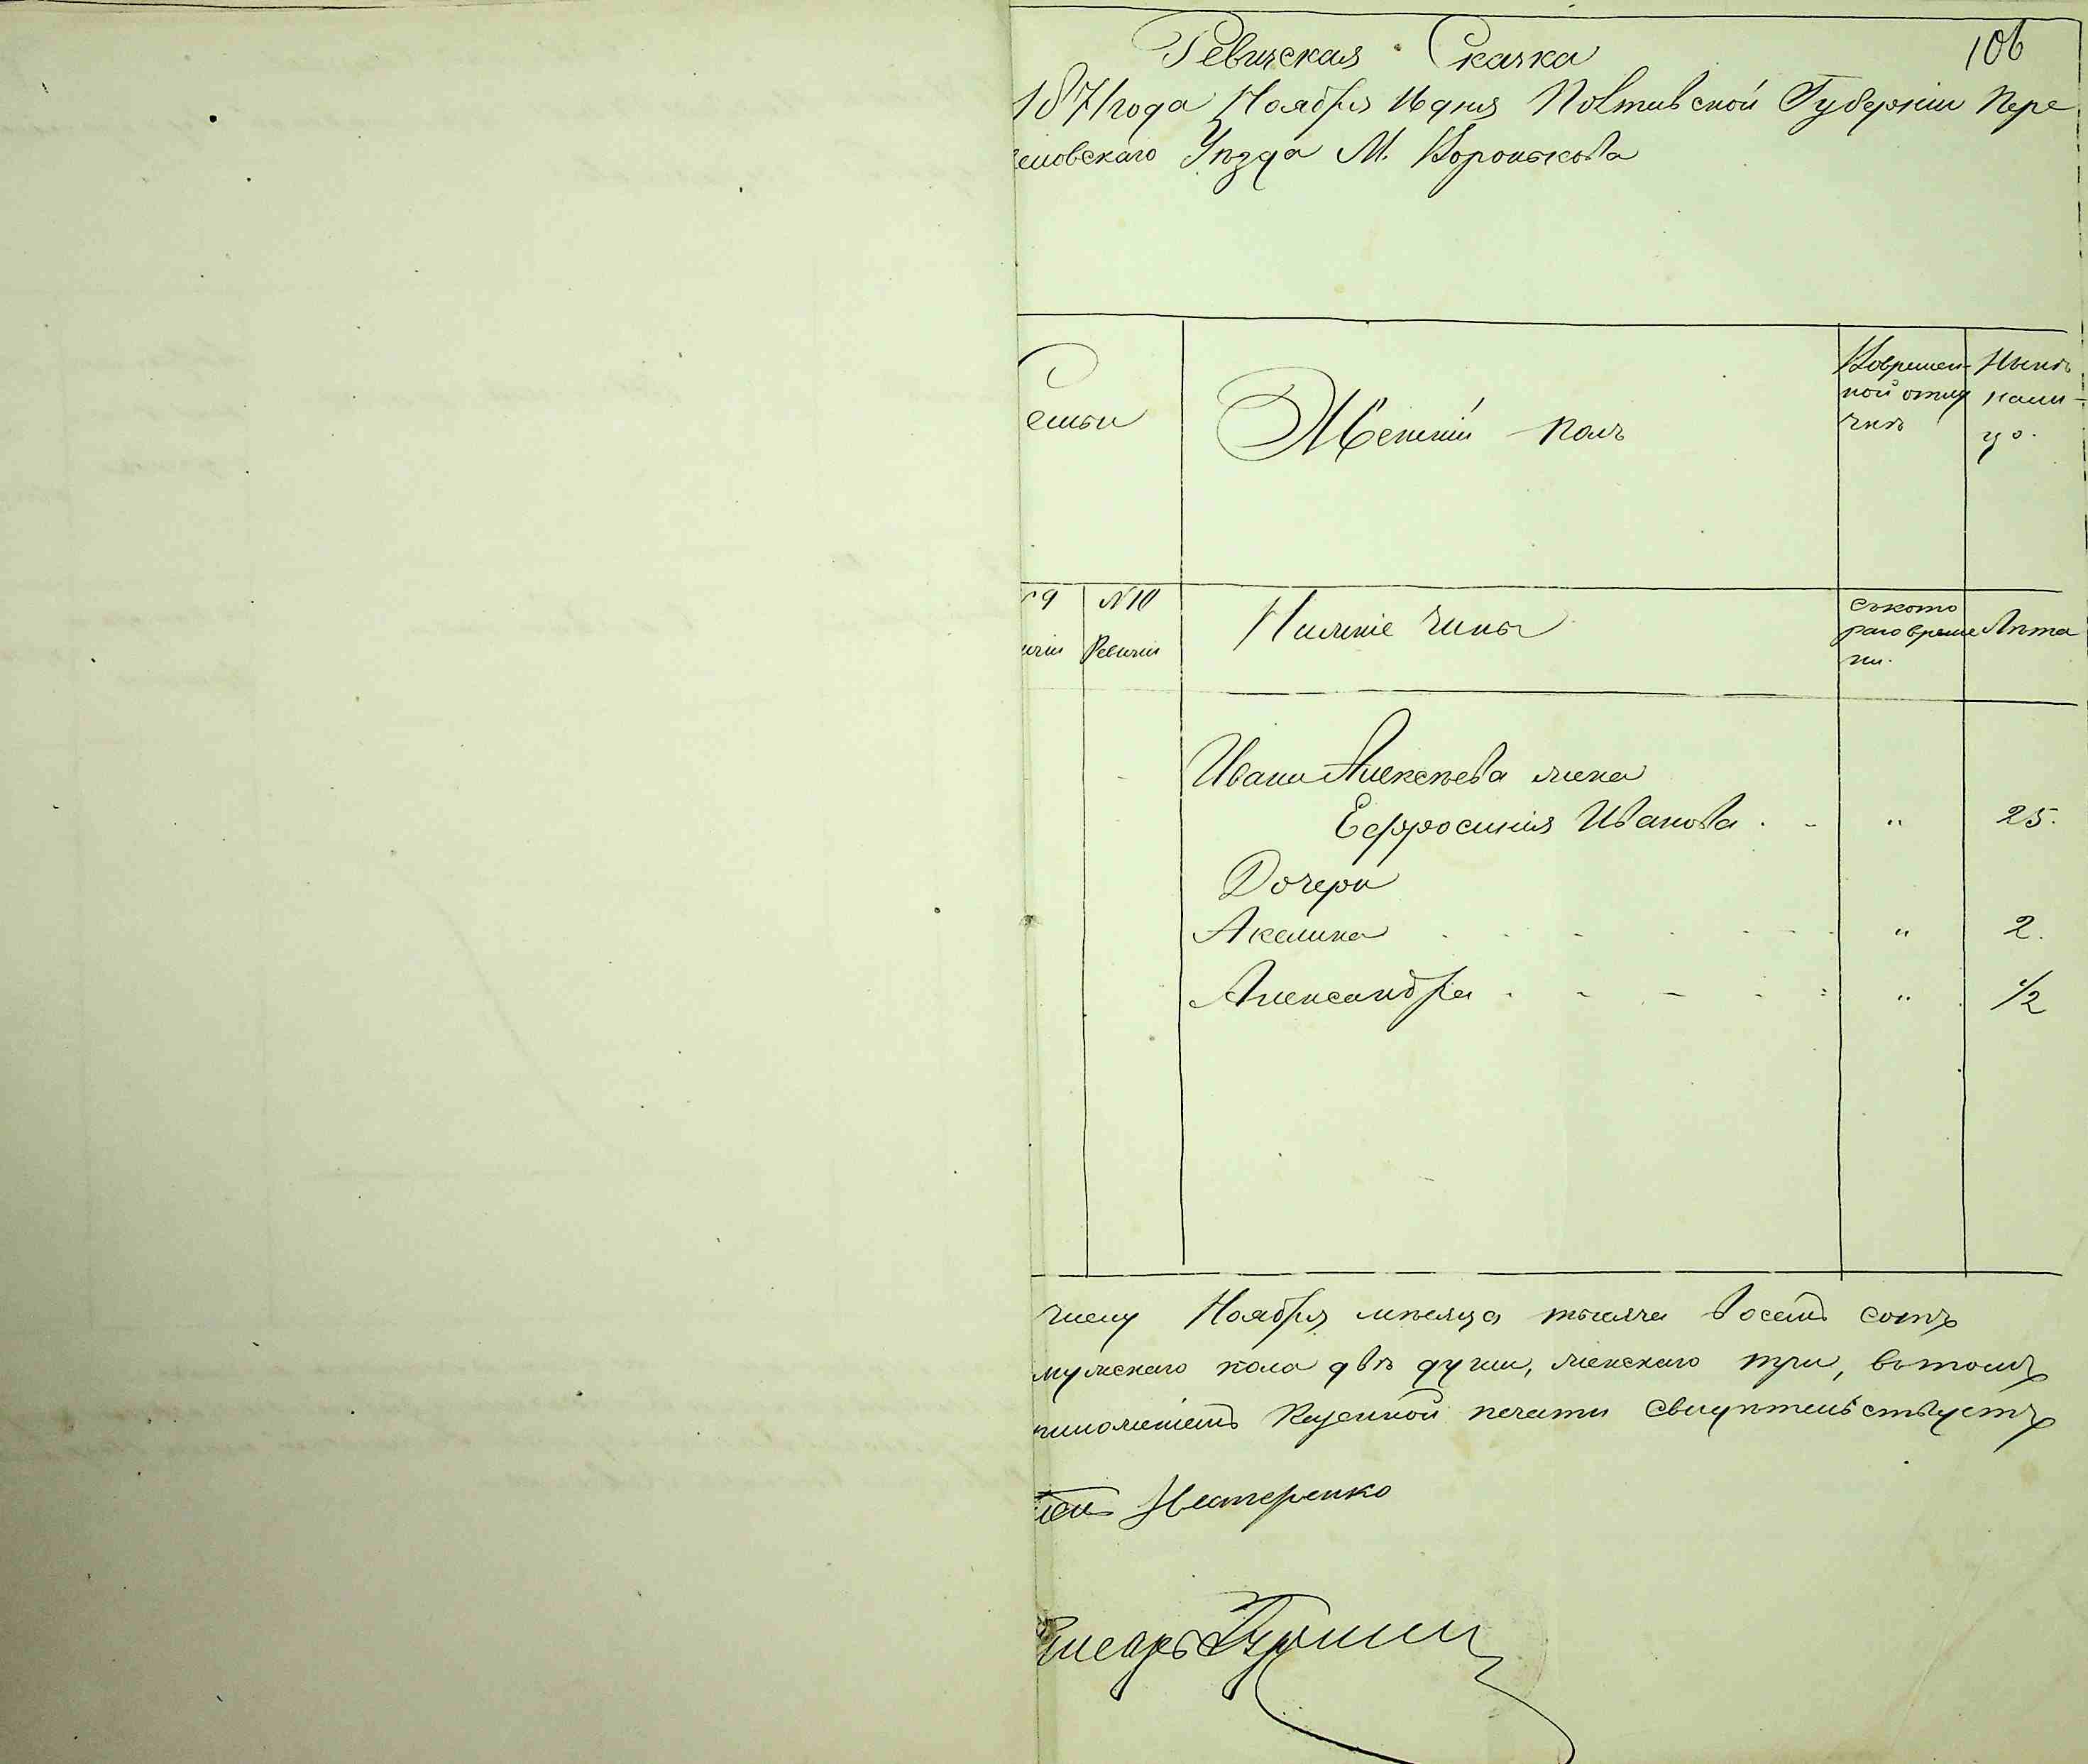 Ревизская Сказка
106
1871 года Ноября 16 дня Полтавской Губерніи Пере
яславскаго Уѣзда М. Воронькова
Семьи
Женскій полъ
Вовремен-
ной отлу
чкѣ
Нынѣ
нали-
цо.
№ 9
№ 10
Ревизіи
Нижніе чины
съкото
раго време
ни.
Лѣта
Ивана Алексѣева жена
Ефросинія Иванова . - " 25.
Дочери
Акелина " 2.
Александра " 1/2
числу Ноября мѣсяца тысяча восемь сотъ
мужскаго пола двѣ души, женскаго три, вътомъ
приложеніемъ Казенной печати свидѣтельствуетъ
Нестеренко
Писарь